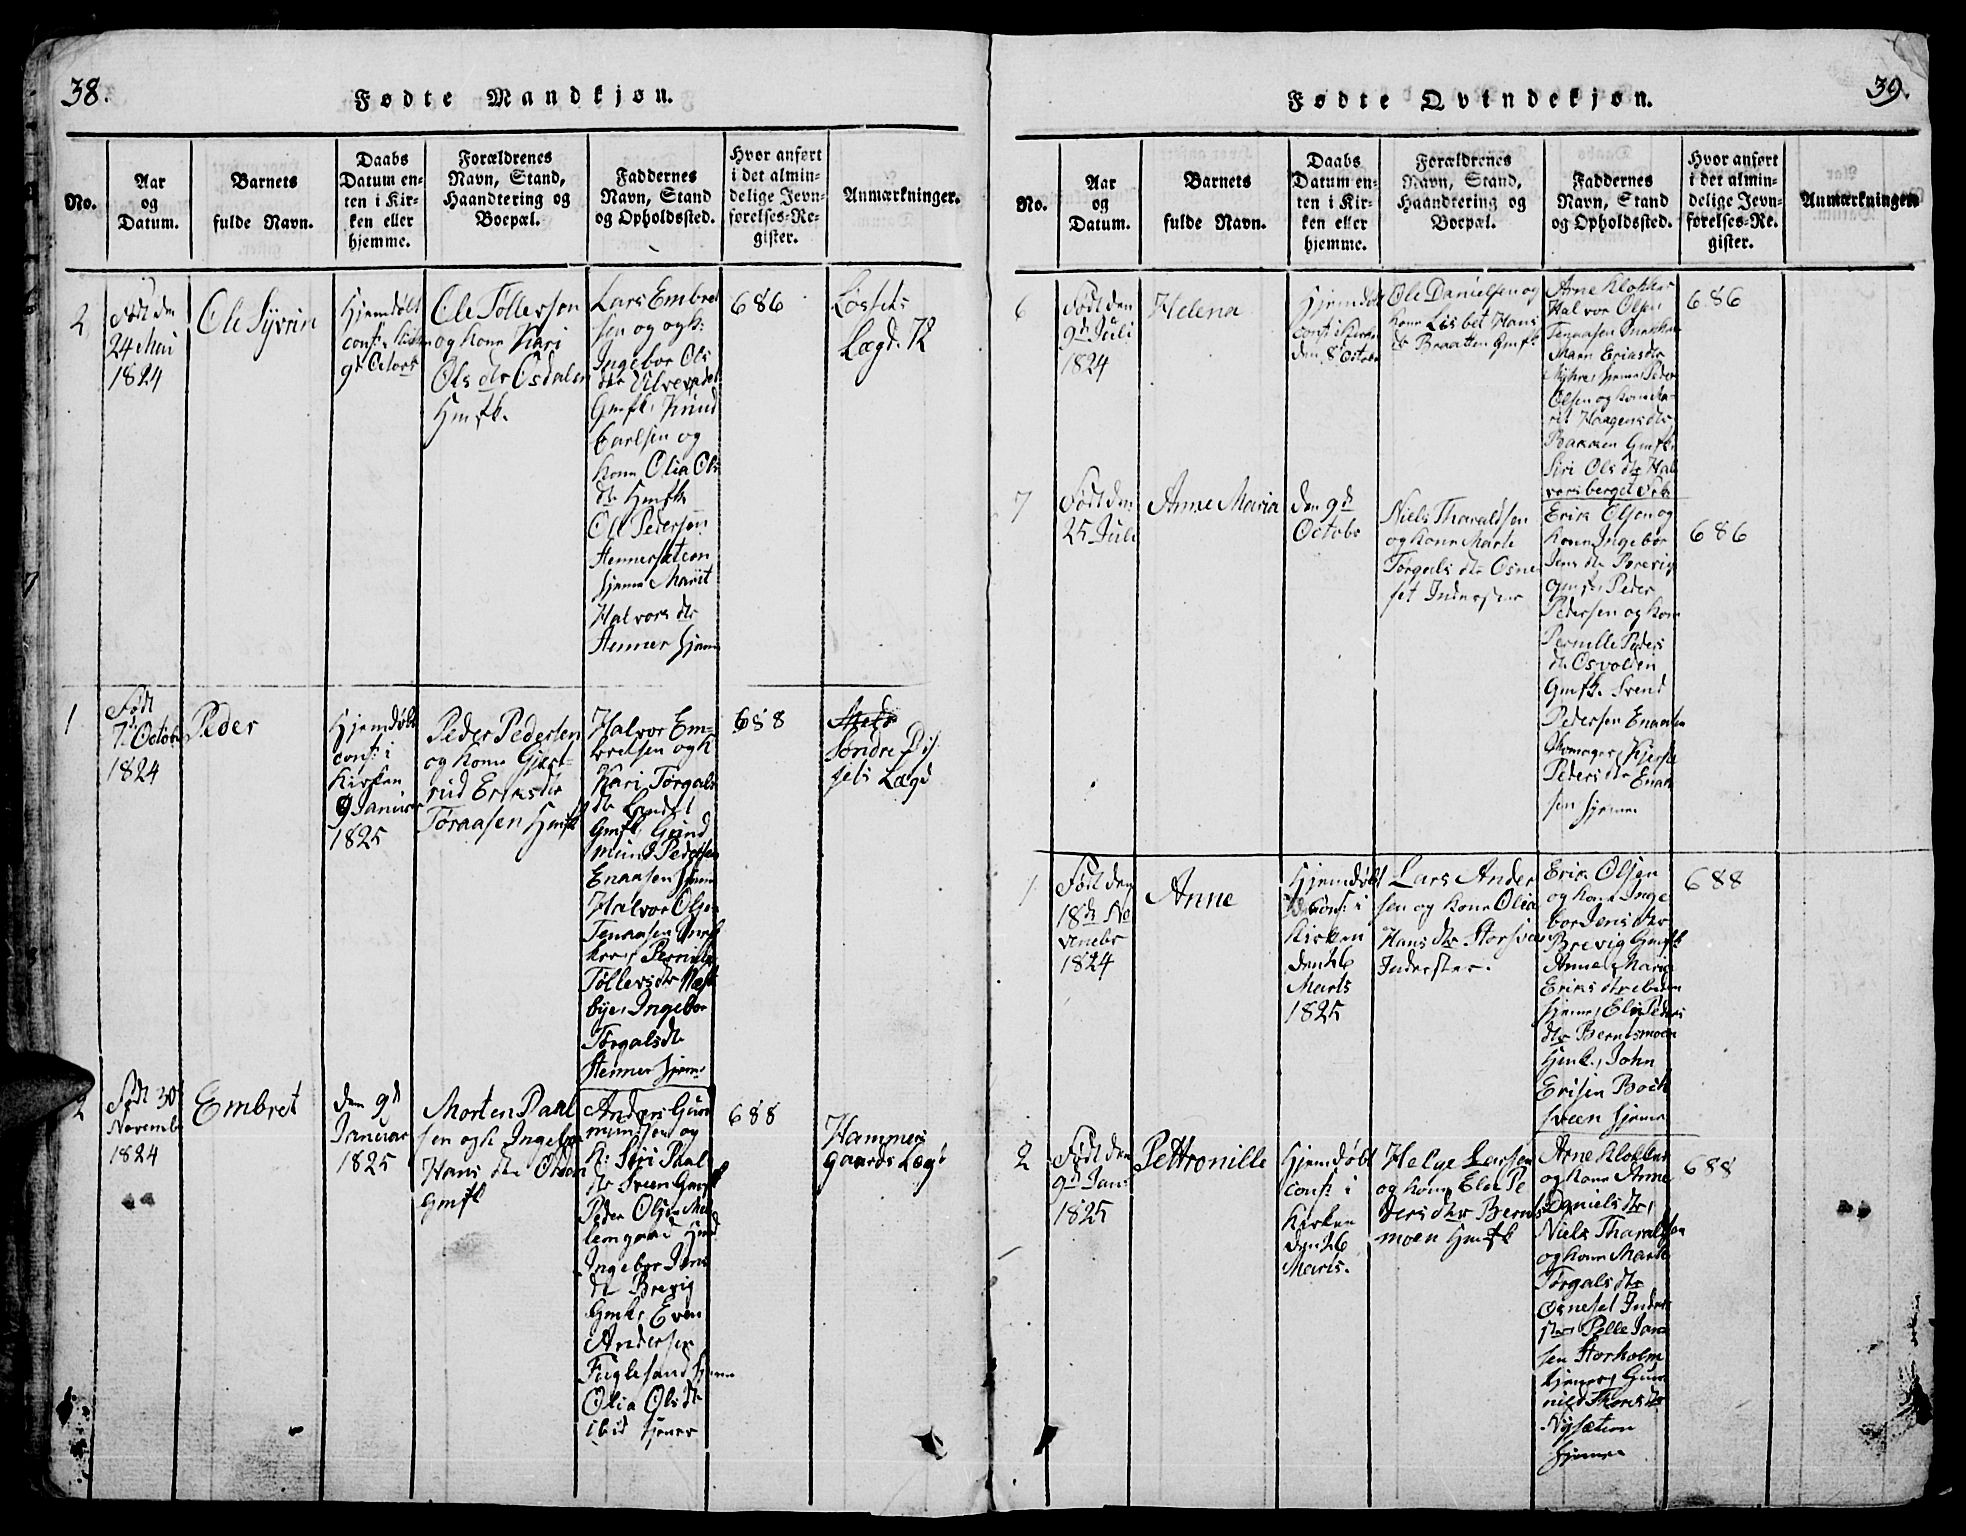 38.
Fødte Mandkjøn.
No.
Aar
og
Datum.
Barnets
fulde Navn.
Daabs
Datum en-
ten i Kir-
ken eller
hjemme.
Forældrenes
Navn, Stand,
Haandtering og
Boepæl.
Faddernes
Navn, Stand
og Opholdssted.
Hvor anført
i det almin-
delige Jevn-
førelses-Re-
gister.
Anmærkninger.
2
Født den
24 Mai
1824
Ole Syvrin
Hjemdøbt
conf: i Kirken
9d Octobr
Ole Tøllersen
og Kone Kari
Ols dtr Osdalen
Hmfk.
Lars Embret
sen og og k:
Ingebor Ols
dtr Ulvevadet
Gmfk, Knud
Carlsen og
Kone Olia Ols
dtr Hmfk
Ole Pedersen
Hennersæteren
hjeme Marit
Halvors dtr
Henner hjem
686
Løssets
Lægd. 12
1
Født
7d Octobr
1824
Peder
Hjemdøbt
conf: i
Kirken
9 Januar
1825
Peder Pedersen
og Kone Gjert-
rud Eriks dtr
Toraasen Hmfk
Halvor Em-
bretsen og k
Kari Torgals
dtr Landet
Gmfk, Gund
mund Pedersen
Enaasen hjem
Halvor Olsen
Tenaasen
Pernille
Tøllers dtr Næst
bye, Ingebor
Torgals dtr
Henner hjem
688
Søndre Øs
sets Lægd
2
Født 30
Novembr
1824
Embret
den 9d
Januar
1825
Morten Paal
sen og k Ingebor
Hans dtr
Gmfk
Anders Gun
mundsen og
k: Siri Paal
dtr Sveen Gmfk
Peder Olsen
Ingebor Jens
dtr Brevig
Gmfk, Even
Andersen
Fuglesand hjeme
Olia Ols dtr
ibid hjemme
688
Hammers
gaards Lægd
39.
Fødte Qvindekjøn.
No.
Aar
og
Datum.
Barnets
fulde Navn.
Daabs
Datum en-
ten i Kir-
ken eller
hjemme.
Forældrenes
Navn, Stand,
Haandtering og
Boepæl.
Faddernes
Navn, Stand
og Opholdssted.
Hvor anført
i det almin-
delige Jevn-
førelses-Re-
gister.
Anmærkninger.
6
Født den
9d Juli
1824
Helena
Hjemdøbt
conf: i Kirken
den 8 Octobr
Ole Danielsen og
Kone Lisbet Hans
dtr Braatten Gmfk
Arne Klokker
Halvor Olsen
Tenaasen
Maren Eriks dtr
Myhre, hjeme, Peder
Olsen og Kone Ma-
rit Haagens dtr
Bakken Gmfk
Siri Ols dtr Hal
vorsberget
686
7
Født den
25 Juli
Anne Maria
den 9d
Octobr
Niels Tharaldsen
og Kone Marte
Torgals dtr Osne
set Inderster
Erik Olsen og
Kone Ingebor
Jens dtr Brevig
Gmfk, Peder
Pedersen og Kone
Pernille Peders
dtr Osvolden
Gmfk. Svend
Pedersen Enaasen
Skomager, Kjersti
Peders dtr Enaa
sen hjeme
686
1
Født den
18de No
vembr
1824
Anne
Hjemdøbt
conf: i
Kirken
den 26
Marts
1825
Lars Ander
sen og Kone Olia
Hans dtr Storsveen
Inderster.
Erik Olsen
og Kone Inge
bor Jens dtr
Brevig Gmfk
Anne Marie
Eriks dtr ibidem
hjeme, Eli Peders
dtr Berntsmoen
Hmfk, John
Ersen Bæck
sveen hjeme
688
2
Født den
9d Janr
1825
Pettronille
Hjemdøbt
conf: i
Kirken
den 26
Marts.
Helge Larsen
og Kone Elie Pe
ders dtr Bernts
moen Hmfk
Arne Klokker
og Kone Anne
Daniels dtr,
Niels Tharaldsen
og Kone Marte
Torgals dtr
Osneset Inder
ster Pelle Jan
sen Storholm
hjeme, Gun
nild Thores dtr
Nysæteren
hjeme
688